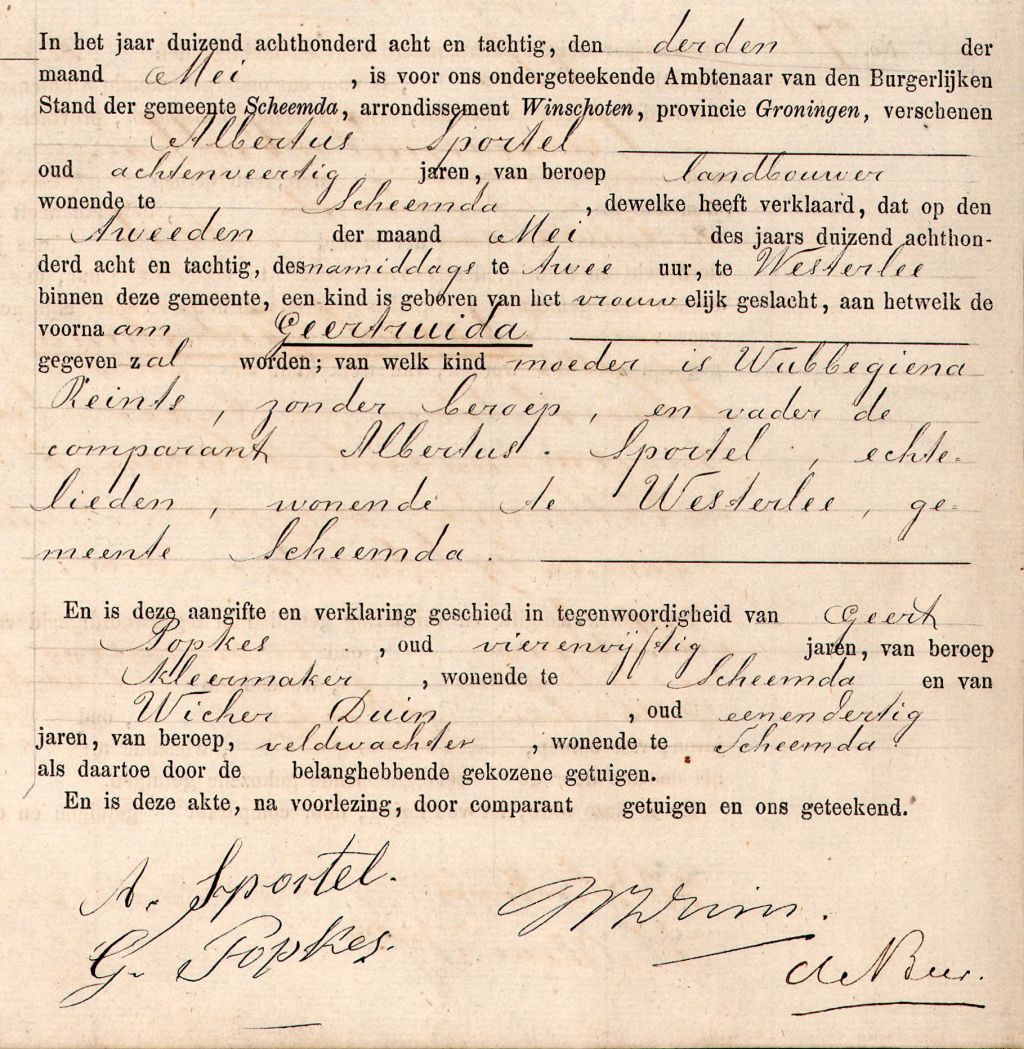 In het jaar duizend achthonderd acht en tachtig, den derden der
maand Mei, is voor ons ondergeteekende Ambtenaar van den Burgerlijken
Stand der gemeente Scheemda, arrondissement Winschoten, provincie Groningen, verschenen
Albertus Sportel
oud achtenveertig jaren, van beroep landbouwer
wonende te Scheemda, dewelke heeft verklaard, dat op den
tweeden der maand Mei des jaars duizend achthon-
derd acht en tachtig, des namiddags te twee uur, te Westerlee
binnen deze gemeente, een kind is geboren van het vrouwelijk geslacht, aan hetwelk de
voornaam Geertruida
gegeven zal worden; van welk kind moeder is Wubbegiena
Reints, zonder beroep, en vader de
comparant Albertus Sportel, echte-
lieden, wonende te Westerlee, ge-
meente Scheemda.
En is deze aangifte en verklaring geschied in tegenwoordigheid van Geert
Popkes, oud vierenvijftig jaren, van beroep
kleermaker, wonende te Scheemda en van
Wicher Duin, oud eenendertig
jaren, van beroep, veldwachter, wonende te Scheemda
als daartoe door de belanghebbende gekozene getuigen.
En is deze akte, na voorlezing, door comparant getuigen en ons geteekend.
A. Sportel.
G. Popkes.
W Duin.